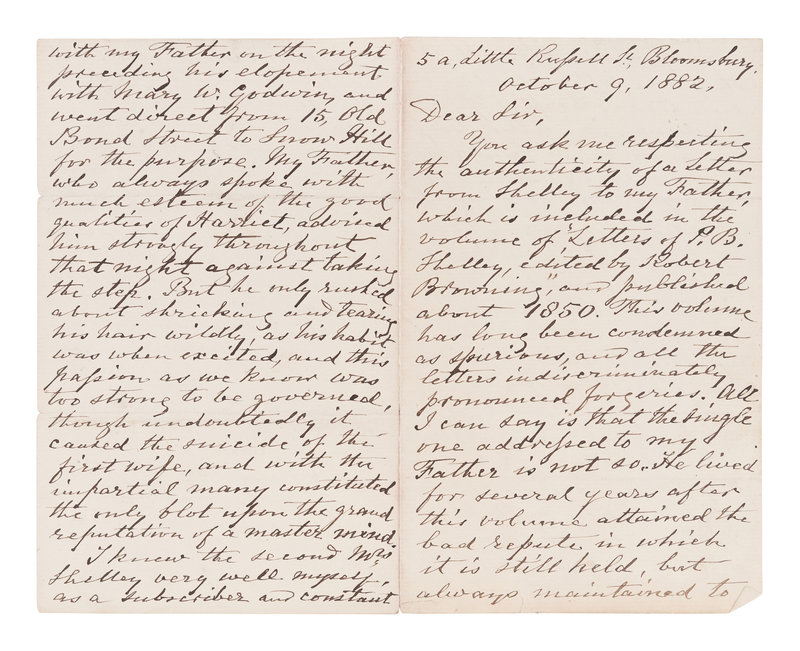 5 a, Little Russell St, Bloomsbury.
October 9, 1882.
Dear Sir,
You ask me respecting
the authenticity of a Letter
from Shelley to my Father,
which is included in the
volume of "Letters of P. B.
Shelley, edited by Robert
Browning" and published
about 1850. This volume
has long been condemned
as spurious, and all the
letters indiscriminately
pronounced forgeries. All
I can say is that the single
one addressed to my
Father is not so. He lived
for several years after
this volume attained the
bad repute in which
it is still held, but
always maintained to
with my Father on the night
preceding his elopement
with Mary W. Godwin, and
went direct from 15, Old
Bond Street to Snow Hill
for the purpose. My Father,
who always spoke with
much esteem of the good
qualities of Harriet, advised
him strongly throughout
that night against taking
the step. But he only rushed
about shrieking and tearing
his hair wildly, as his habit
was when excited, and this
passion as we know was
too strong to be governed,
though undoubtedly it
caused the suicide of the
first wife, and with the
impartial many constituted
the only blot upon the grand
reputation of a master mind.
I knew the second Mrs
Shelley very well myself,
as a subscriber and constant